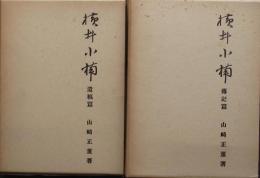 横井小楠
遺稿篇
山崎正董著
横井小楠
傳記篇
山崎正董著